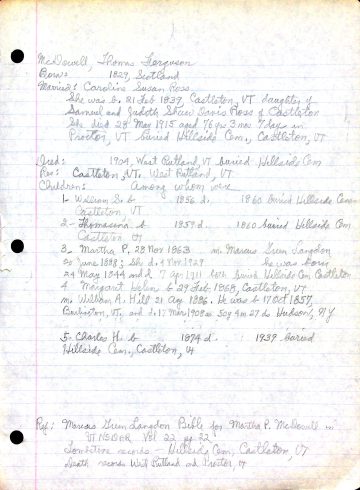 McDowell, Thomas Ferguson
Born: 1827, Scotland
Married: Caroline Susan Ross
She was b. 21 Feb 1837, Castleton, VT daughter of
Samuel and Judith Shaw Davis Ross of Castleton
She died 28 Mar 1915 aged 76 yrs 3 mos 7 days in
Proctor, VT buried Hillside Cem., Castleton, VT
Died: 1904, West Rutland, VT buried Hillside Cem
Res: Castleton, VT, West Rutland, VT
Children: Among whom were
1- William S. b 1856 d. 1860 buried Hillside Cem
Castleton, VT
2- Thomasina b 1859 d. 1860 buried Hillside Cem
Castleton VT
3. Martha P. 28 Nov 1863 m. Marcus Green Langdon
20 June 1888; She d. 4 Nov 1929 he was born
24 May 1844 and d 7 Apr 1911 both buried Hillside Cem Castleton
4. Margaret Helen b 29 Feb 1868, Castleton, VT
m. William A. Hill 21 Aug 1886. He was b 17 Oct 1857,
Burlington, VT, and d. 17 Mar 1908 Hudson, NY
5. Charles H. b 1874 d. 1939 buried
Hillside Cem., Castleton, VT
Ref: Marcus Green Langdon Bible for Martha P. McDowell ...
VT NSDAR Vol 22 pg 82
Tombstone records - Hillside Cem, Castleton, VT
death records West Rutland and Proctor, VT